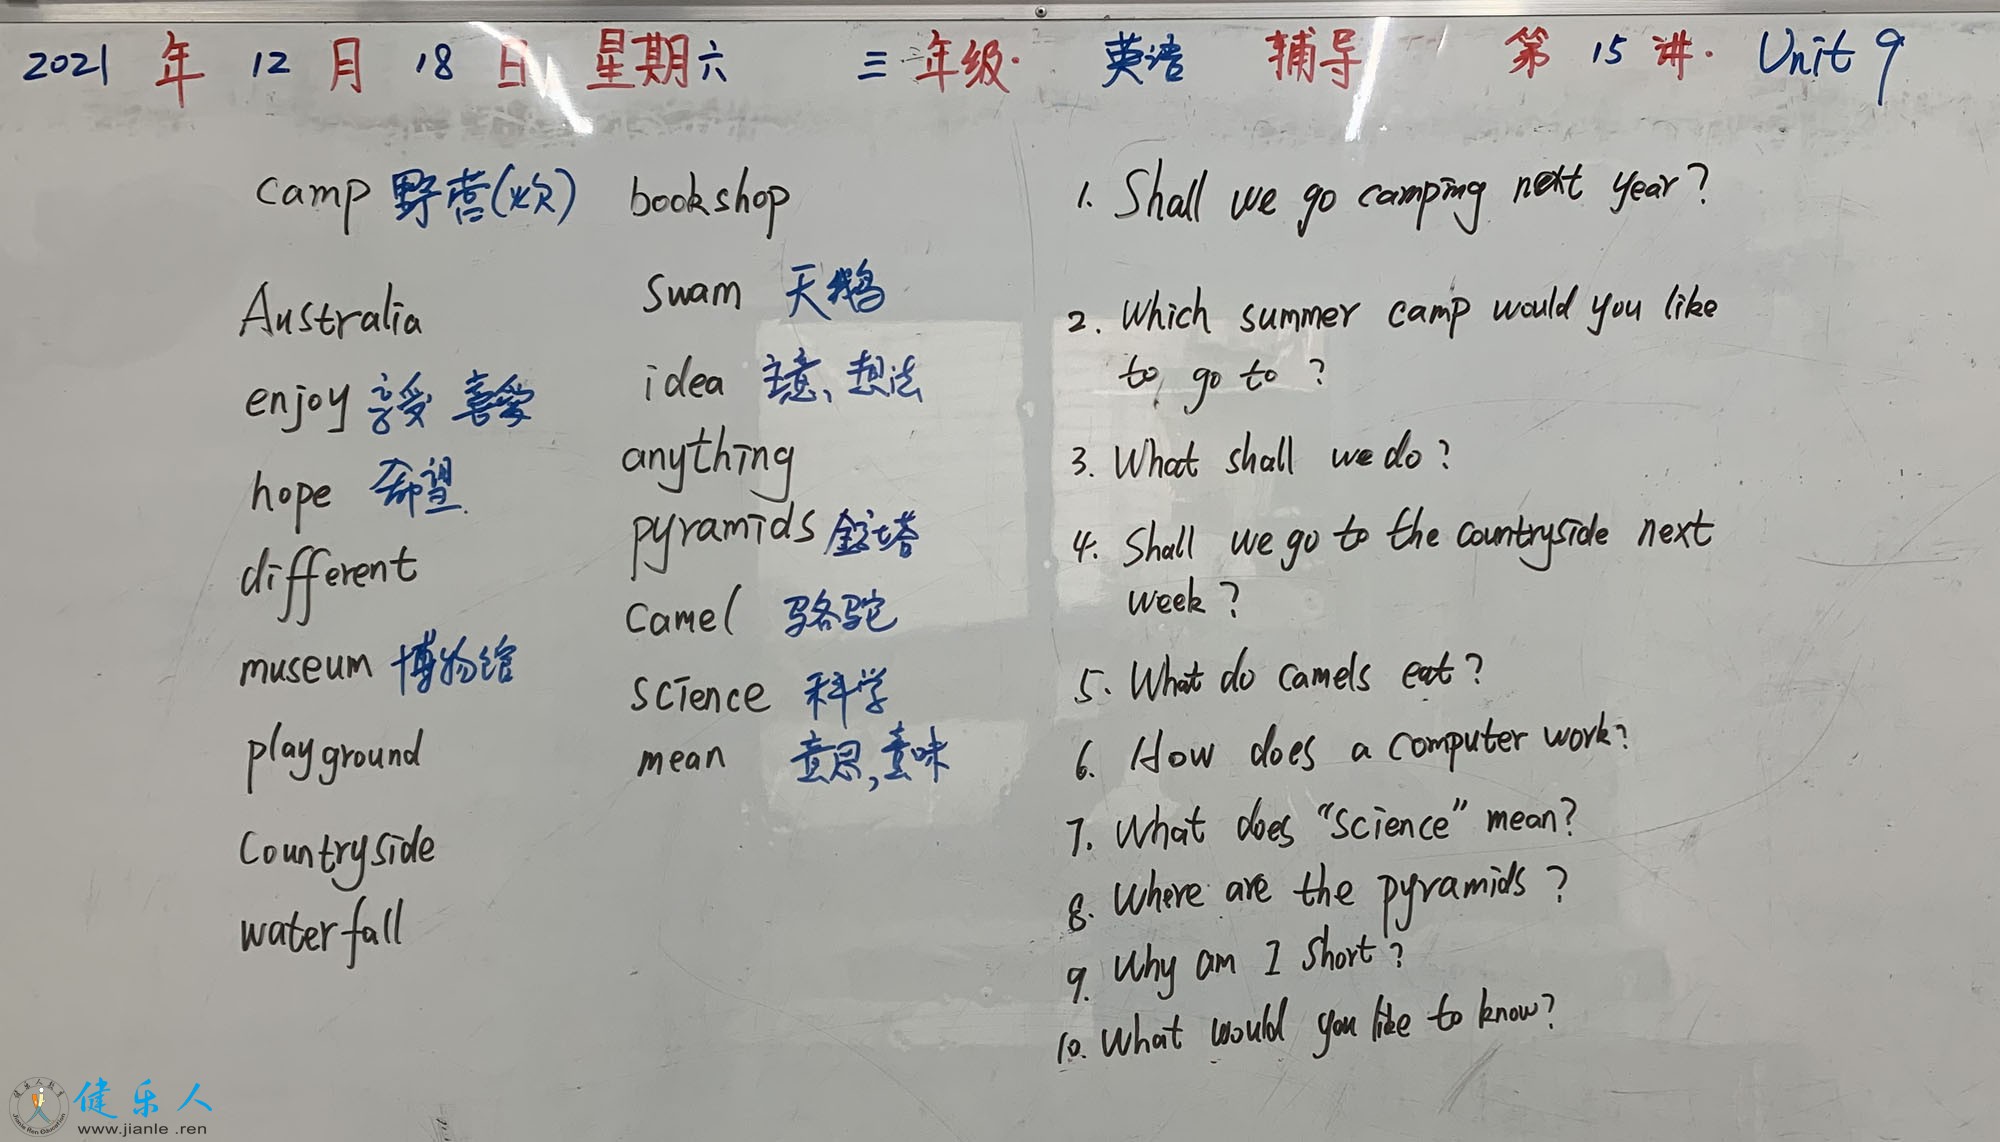 2021 年 12 月 18 日 星期六 三年级. 英语 辅导 第 15 讲. Unit 9
camp 野营(炊)
Australia
enjoy 享受 喜爱
hope 希望
different
museum 博物馆
playground
Countryside
waterfall
bookshop
swam 天鹅
idea 主意、想法
anything
pyramids 金字塔
Camel 骆驼
science 科学
mean 意思,意味
1. Shall we go camping next year?
2. Which summer camp would you like
to go to ?
3. What shall we do?
4. Shall we go to the countryside next
week?
5. What do camels eat?
6. How does a computer work?
7. What does "science" mean?
8. Where are the pyramids ?
9. Why am I short?
10. What would you like to know?
健乐人
www.jianle .ren